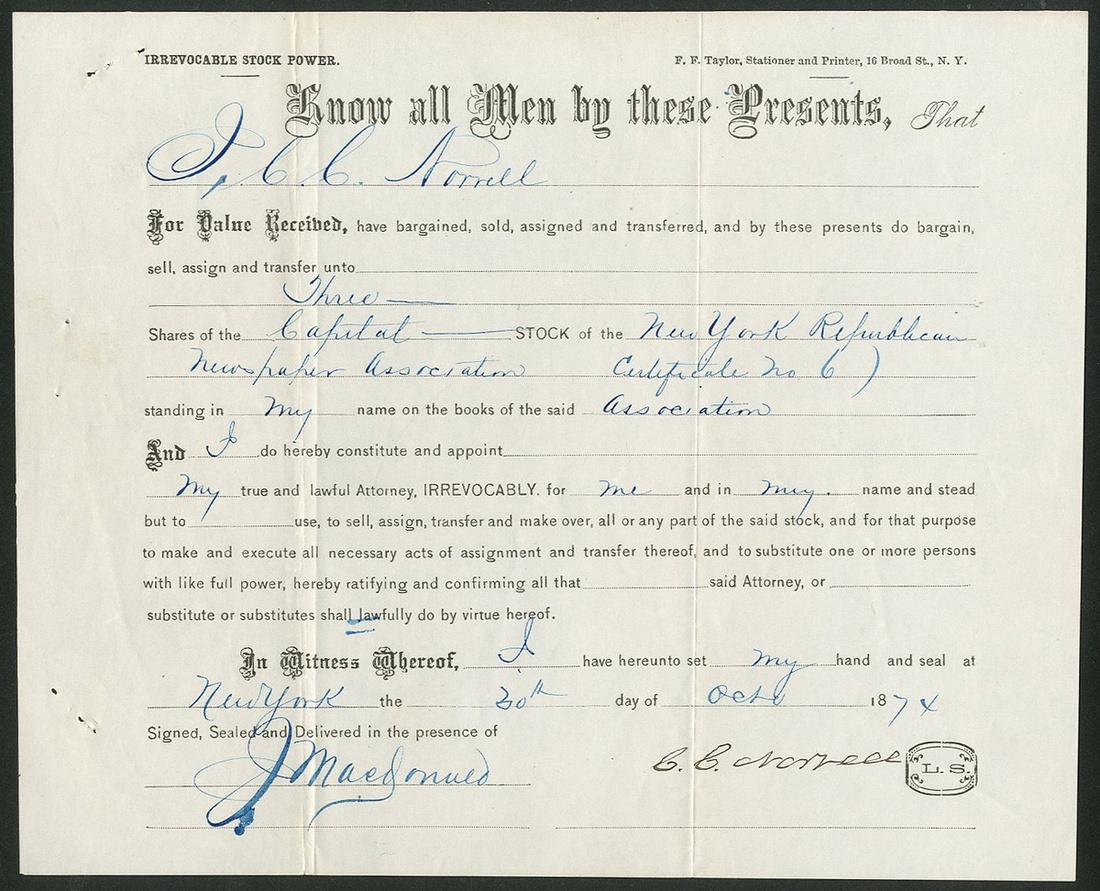 IRREVOCABLE STOCK POWER. F. F. Taylor, Stationer and Printer, 16 Broad St., N. Y.
Know all Men by these Presents, That
I, C. C. Norvell
For Value Received, have bargained, sold, assigned and transferred, and by these presents do bargain,
sell, assign and transfer unto
Three
Shares of the Capital STOCK of the New York Republican
Newspaper Association Certificate No 6)
standing in my name on the books of the said Association
And I do hereby constitute and appoint
my true and lawful Attorney, IRREVOCABLY. for me and in my. name and stead
but to use, to sell, assign, transfer and make over, all or any part of the said stock, and for that purpose
to make and execute all necessary acts of assignment and transfer thereof, and to substitute one or more persons
with like full power, hereby ratifying and confirming all that said Attorney, or
substitute or substitutes shall lawfully do by virtue hereof.
In Witness Whereof, I have hereunto set my hand and seal at
New York the 30th day of Octo 1874
Signed, Sealed and Delivered in the presence of
J MacDonald C. C. Norvell L. S.